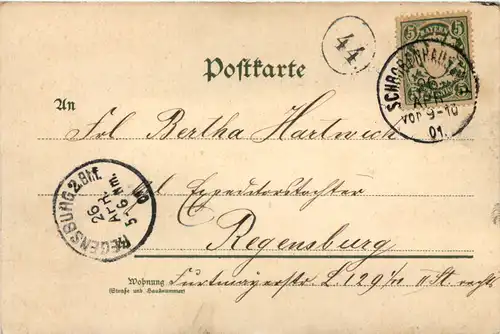 44.
5 BAYERN 5
SCHROBENHAUSEN
APR
Vor 9-10
01.
Postkarte
An
Frl Bertha Hartwich
Expeditorstochter
Regensburg
REGENSBURG 2. Bhf.
26
APR
5-6 Nm.
Wohnung
(Straße und Hausnummer)
L 129 II St. rechts